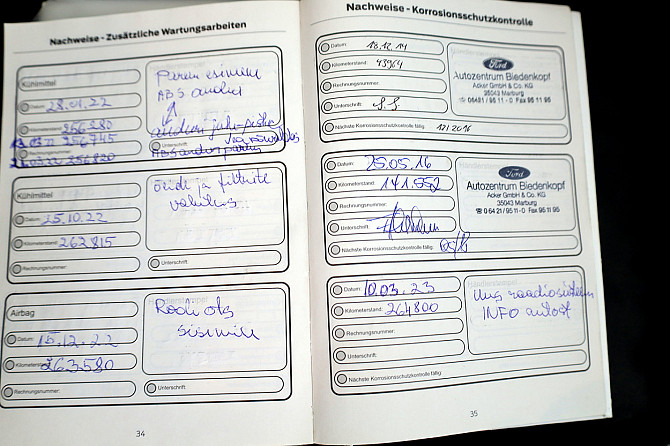 Nachweise - Zusätzliche Wartungsarbeiten
Kühlmittel
Datum: 28.01.22
Kilometerstand: 256280
13.03.22 256745
256820
Parem esimene
ABS andur
ABS andur
Kühlmittel
Datum: 25.10.22
Kilometerstand: 262815
Rechnungsnummer:
õlide ja filtrite
vahetus
Unterschrift:
Airbag
Datum: 15.12.22
Kilometerstand: 263580
Rechnungsnummer:
Rooli ots
sisemine
Unterschrift:
34
Nachweise - Korrosionsschutzkontrolle
Datum: 16.12.14
Kilometerstand: 43964
Rechnungsnummer:
Unterschrift:
Nächste Korrosionsschutzkontrolle fällig: 12/2016
Ford
Autozentrum Biedenkopf
Acker GmbH & Co. KG
35043 Marburg
☎ 06421 / 95 11 - 0 Fax 95 11 95
Datum: 25.05.16
Kilometerstand: 141.552
Rechnungsnummer:
Unterschrift:
Nächste Korrosionsschutzkontrolle fällig:
Ford
Autozentrum Biedenkopf
Acker GmbH & Co. KG
35043 Marburg
☎ 0 64 21 / 95 11 - 0 Fax 95 11 95
Datum: 10.03.23
Kilometerstand: 264800
Rechnungsnummer:
Unterschrift:
Nächste Korrosionsschutzkontrolle fällig:
Händlerstempel
Uus raadiosüsteem
INFO autost
35